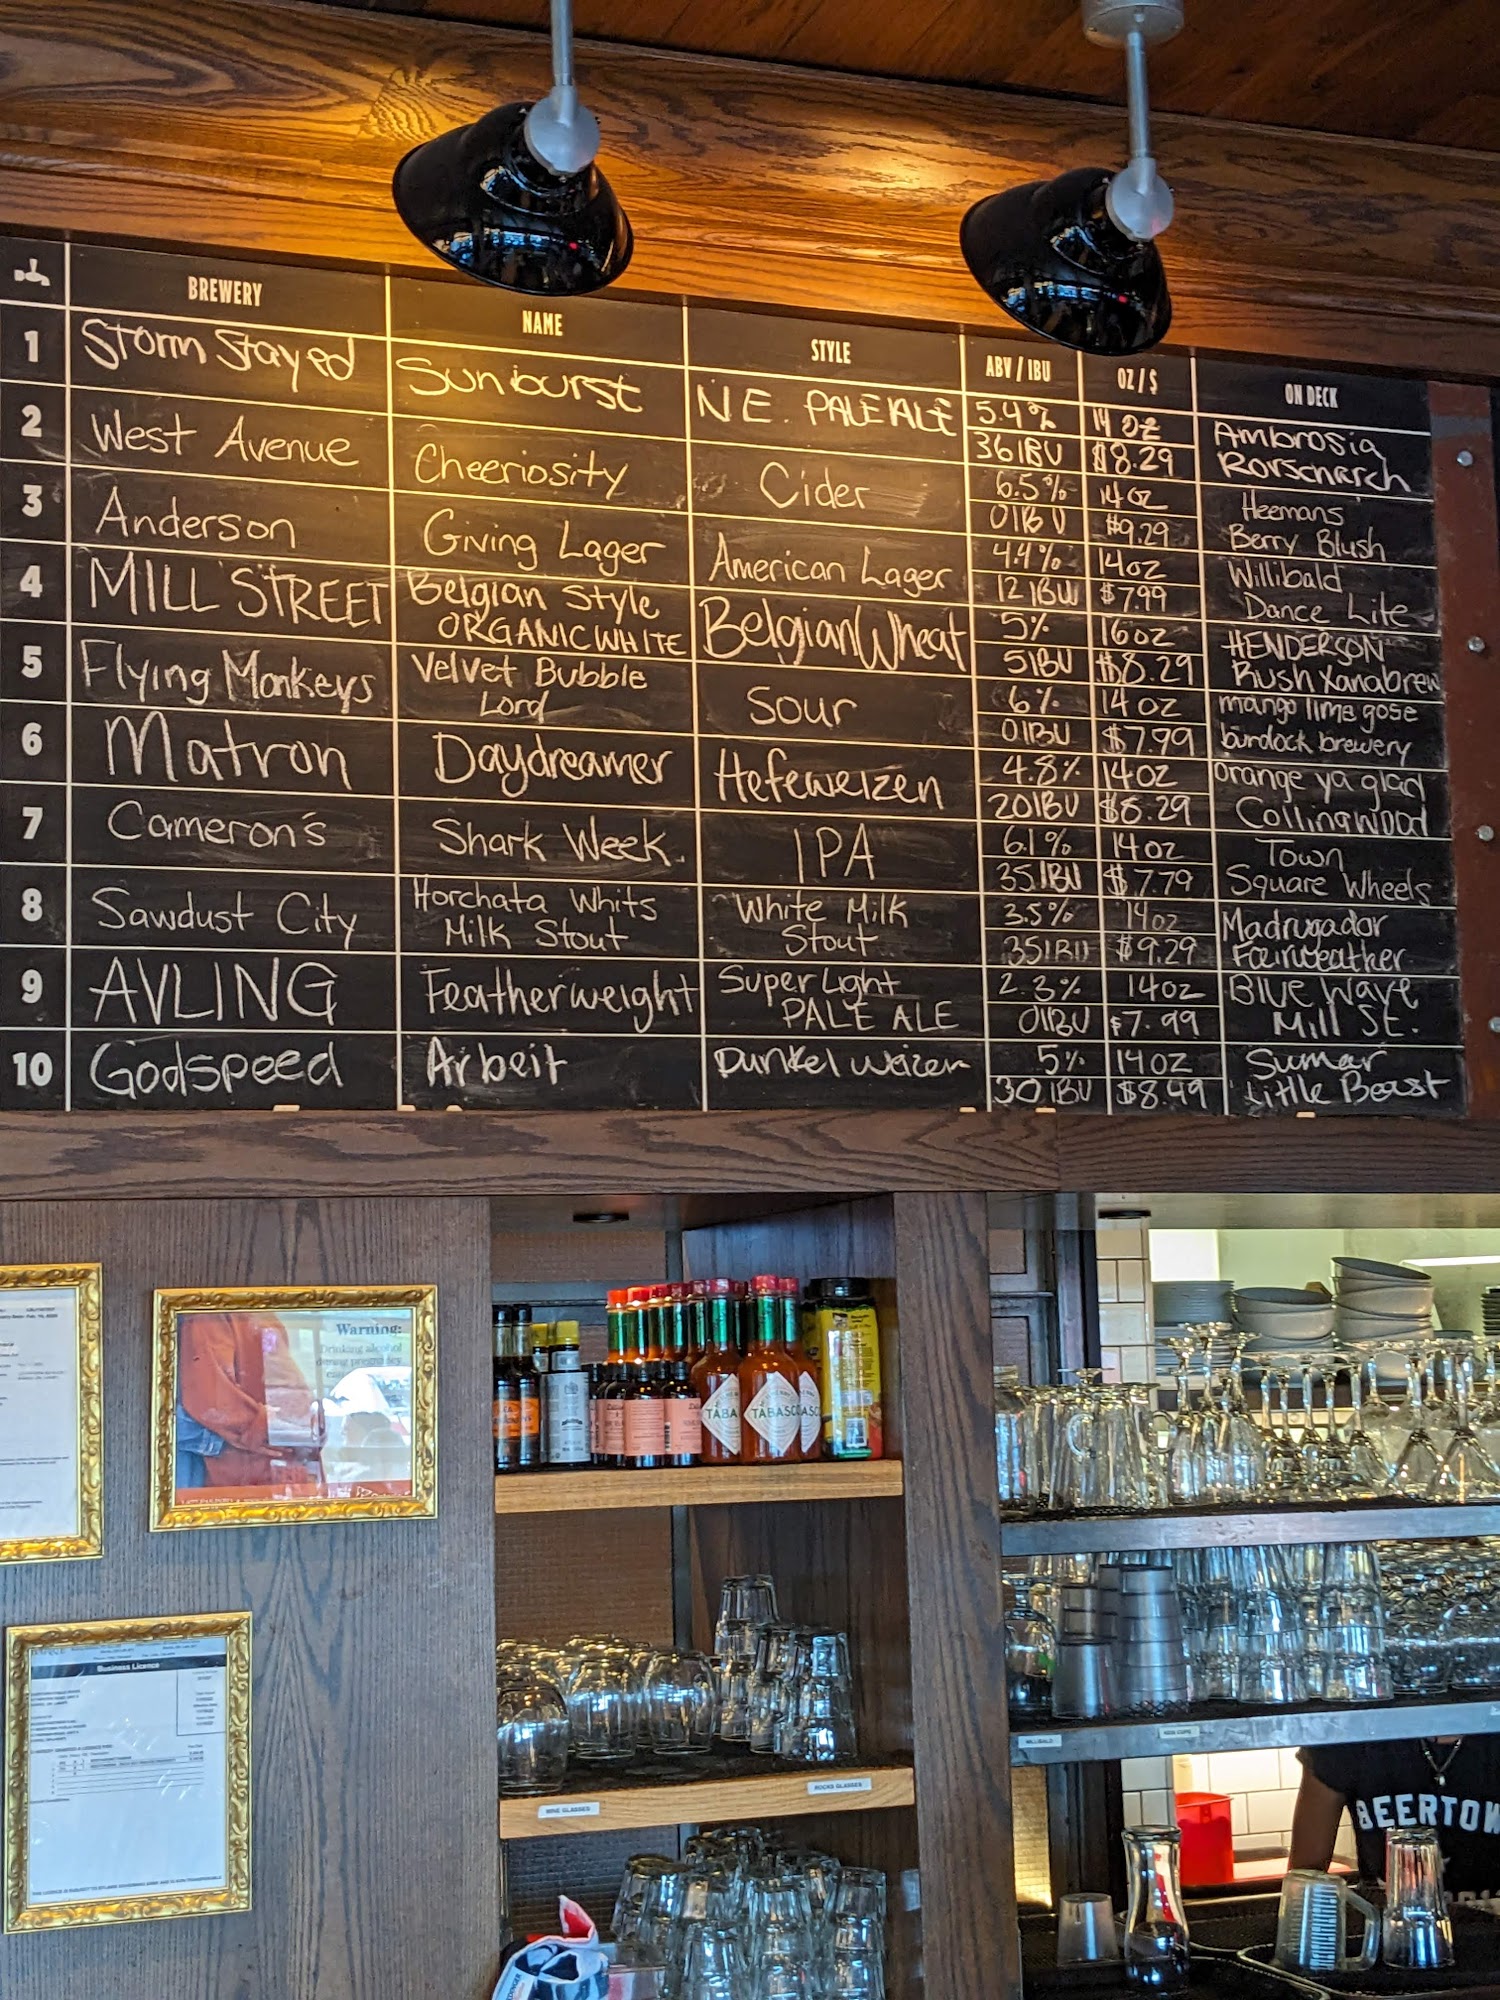 BREWERY NAME STYLE ABV / IBU OZ / $ ON DECK
1 Storm Stayed Sunburst N.E. PALE ALE 5.4% 14 oz Ambrosia
36 IBU $8.29 Rorscharch
2 West Avenue Cheeriosity Cider 6.5% 14 oz Heemans
0 IBU $9.29 Berry Blush
3 Anderson Giving Lager American Lager 4.4% 14oz Willibald
12 IBU $7.99 Dance Lite
4 MILL STREET Belgian Style Belgian Wheat 5% 16oz HENDERSON
ORGANIC WHITE 5 IBU $8.29 Rush Xanabrew
5 Flying Monkeys Velvet Bubble Sour 6% 14 oz mango lime gose
Lord 0 IBU $7.99 burdock brewery
6 Matron Daydreamer Hefeweizen 4.8% 14oz orange ya glad
20 IBU $8.29 Collingwood
7 Cameron's Shark Week IPA 6.1% 14oz Town
35 IBU $7.79 Square Wheels
8 Sawdust City Horchata Whits White Milk 3.5% 14oz Madrugador
Milk Stout Stout 35 IBU $9.29 Fairweather
9 AVLING Featherweight Super Light 2.3% 14oz BLUE WAVE
PALE ALE 0 IBU $7.99 Mill St.
10 Godspeed Arbeit Dunkelweizen 5% 14oz Sumac
30 IBU $8.49 Little Beast
Warning:
Drinking alcohol
during pregnancy
TABASCO
Business Licence
WINE GLASSES
ROCKS GLASSES
WILLIBALD
BEERTOW